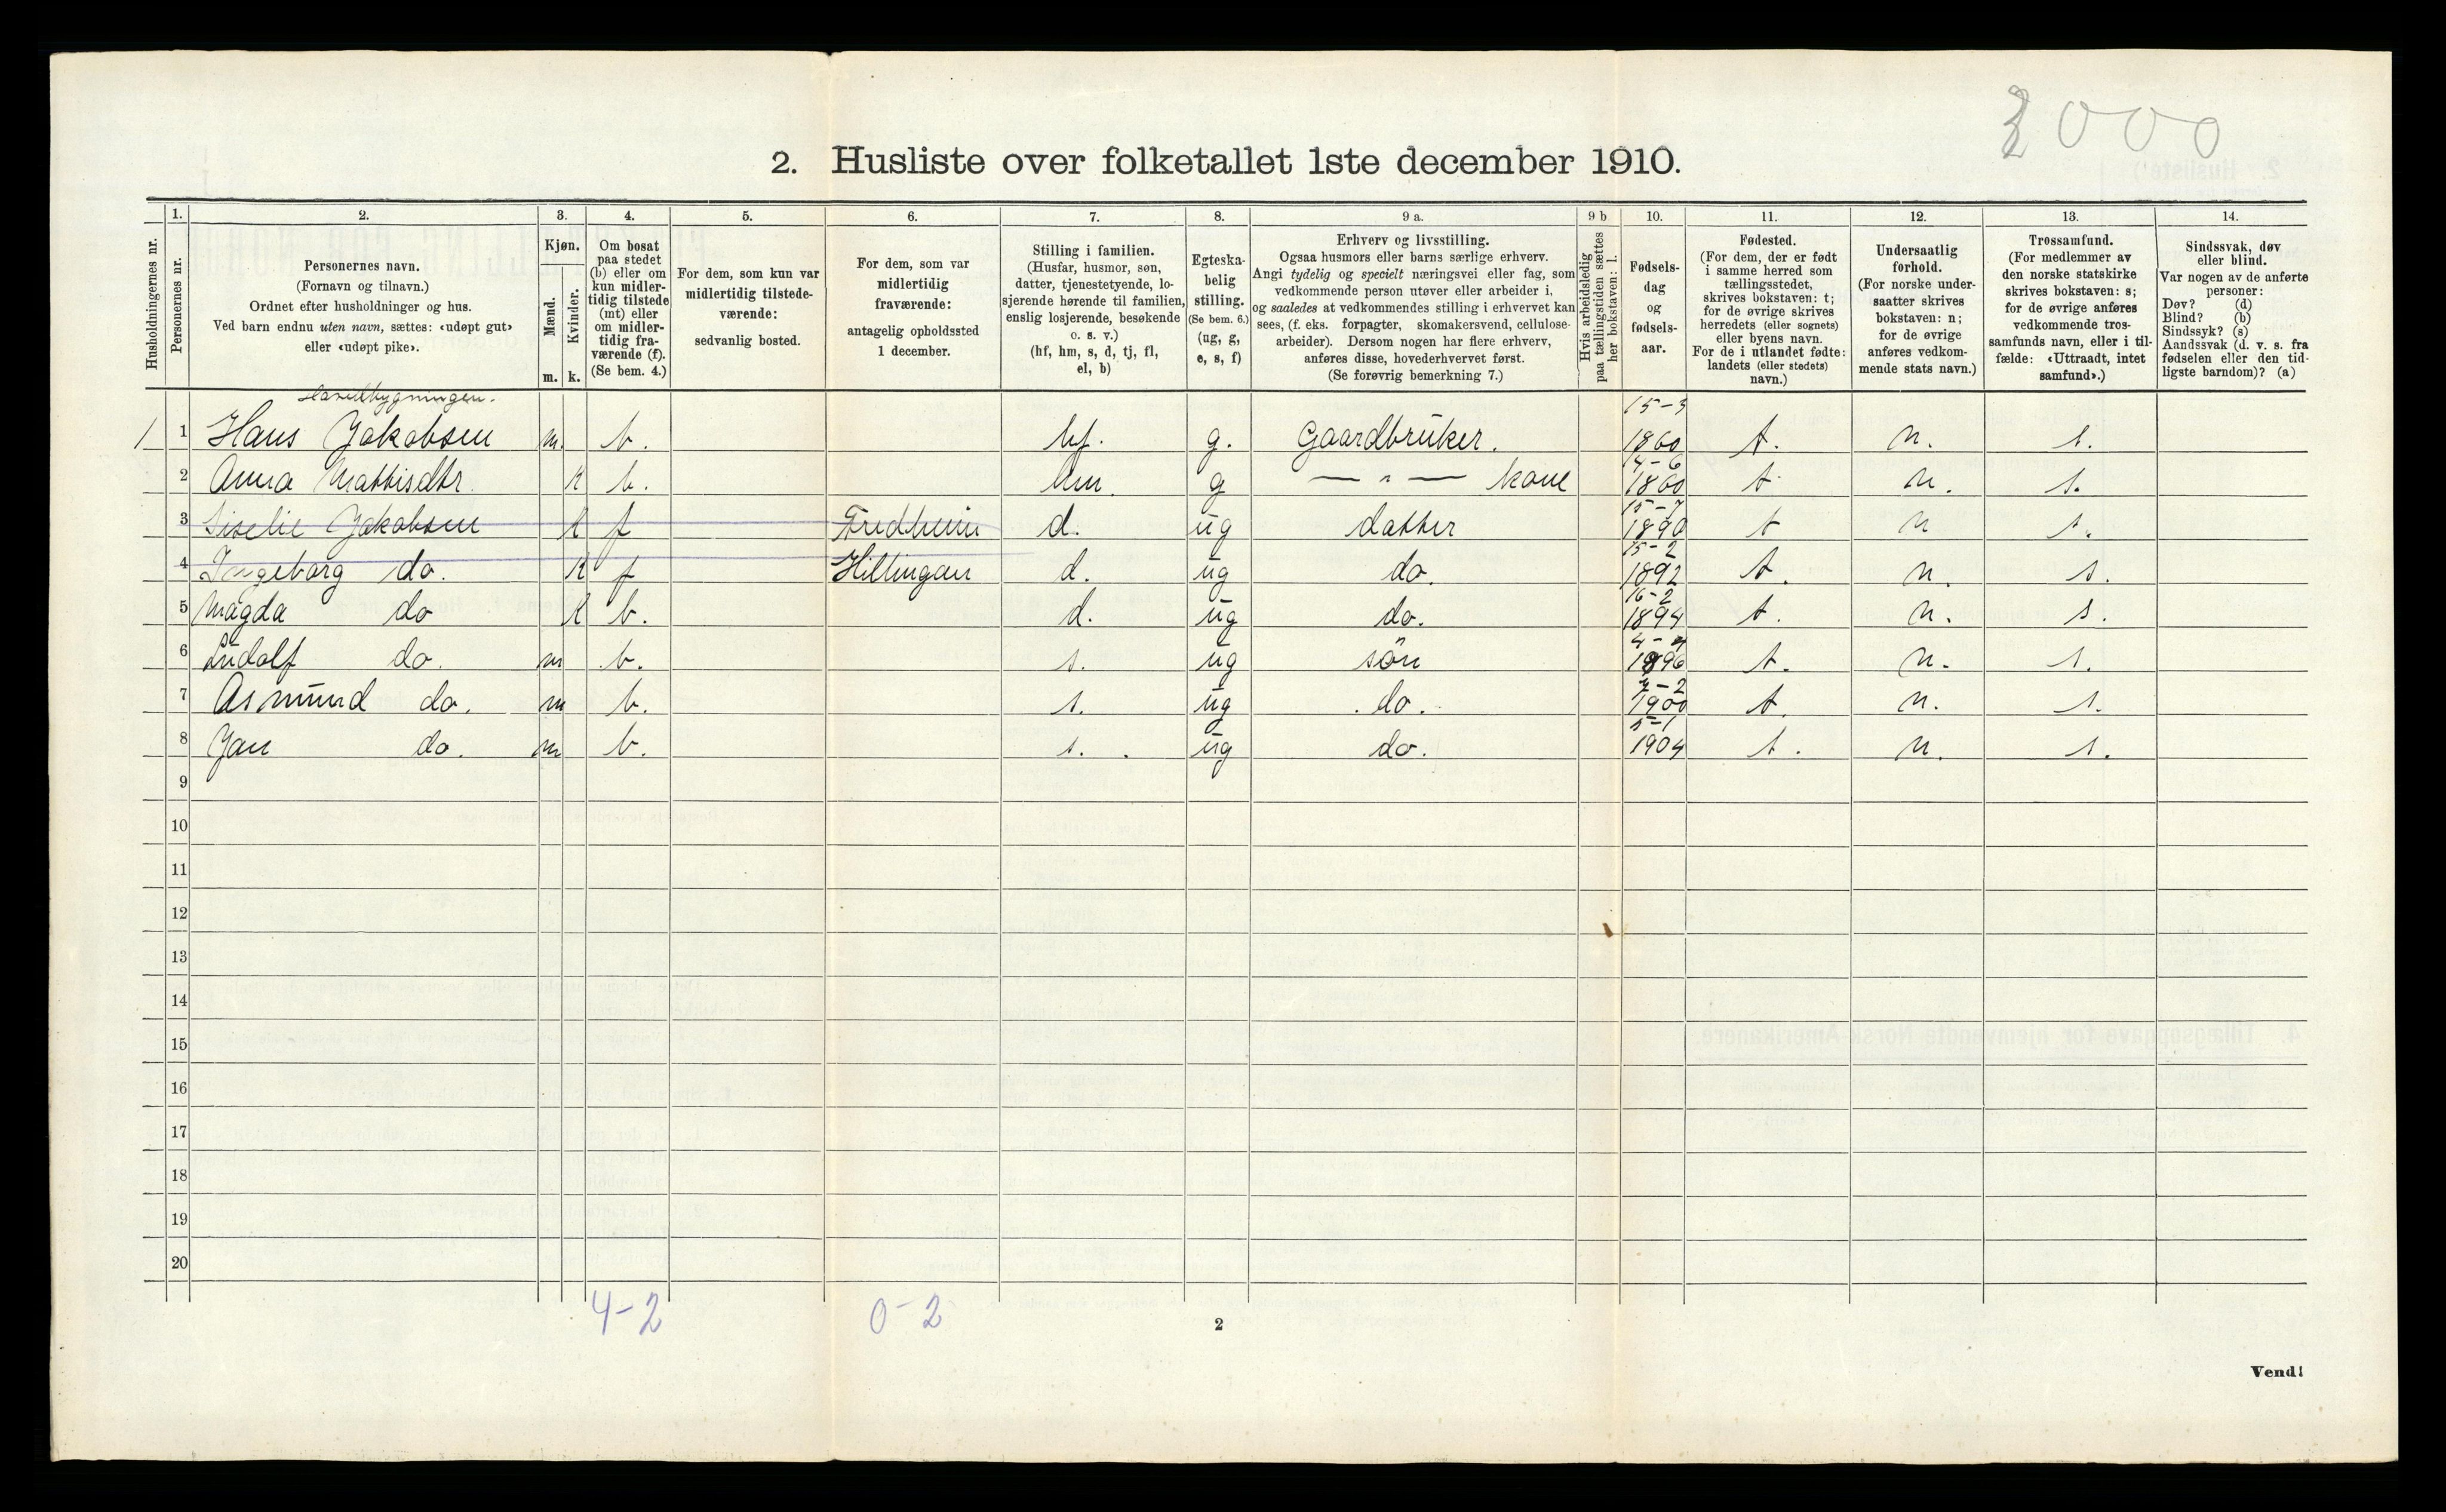 2000
2. Husliste over folketallet 1ste december 1910.
Husholdningernes nr.
1.
Personernes nr.
2.
Personernes navn.
(Fornavn og tilnavn.)
Ordnet efter husholdninger og hus.
Ved barn endnu uten navn, sættes: «udøpt gut»
eller «udøpt pike».
3.
Kjøn.
Mænd.
Kvinder.
m. k.
4.
Om bosat
paa stedet
(b) eller om
kun midler-
tidig tilstede
(mt) eller
om midler-
tidig fra-
værende (f).
(Se bem. 4.)
5.
For dem, som kun var
midlertidig tilstede-
værende:
sedvanlig bosted.
6.
For dem, som var
midlertidig
fraværende:
antagelig opholdssted
1 december.
7.
Stilling i familien.
(Husfar, husmor, søn,
datter, tjenestetyende, lo-
sjerende hørende til familien,
enslig losjerende, besøkende
o. s. v.)
(hf, hm, s, d, tj, fl,
el, b)
8.
Egteska-
belig
stilling.
(Se bem. 6.)
(ug, g,
e, s, f)
9 a.
Erhverv og livsstilling.
Ogsaa husmors eller barns særlige erhverv.
Angi tydelig og specielt næringsvei eller fag, som
vedkommende person utøver eller arbeider i,
og saaledes at vedkommendes stilling i erhvervet kan
sees, (f. eks. forpagter, skomakersvend, cellulose-
arbeider). Dersom nogen har flere erhverv,
anføres disse, hovederhvervet først.
(Se forøvrig bemerkning 7.)
9 b
Hvis arbeidsledig
paa tællingstiden sættes
her bokstaven: l.
10.
Fødsels-
dag
og
fødsels-
aar.
11.
Fødested.
(For dem, der er født
i samme herred som
tællingsstedet,
skrives bokstaven: t;
for de øvrige skrives
herredets (eller sognets)
eller byens navn.
For de i utlandet fødte:
landets (eller stedets)
navn.)
12.
Undersaatlig
forhold.
(For norske under-
saatter skrives
bokstaven: n;
for de øvrige
anføres vedkom-
mende stats navn.)
13.
Trossamfund.
(For medlemmer av
den norske statskirke
skrives bokstaven: s;
for de øvrige anføres
vedkommende tros-
samfunds navn, eller i til-
fælde: «Uttraadt, intet
samfund».)
14.
Sindssvak, døv
eller blind.
Var nogen av de anførte
personer:
Døv? (d)
Blind? (b)
Sindssyk? (s)
Aandssvak (d. v. s. fra
fødselen eller den tid-
ligste barndom)? (a)
1 1 Hans Jakobsen m. b. hf. g. Gaardbruker. 15-3 1860 t. n. s.
2 Anna Mathisdtr. k b. hm. g — " — kone 14-6 1860 t. n. s.
3 Jakobsen k f Fredheim d. ug datter 15-7 1890 t n s.
4 Ingeborg do. k f Hillingan d. ug do. 15-2 1892 t. n. s.
5 Magda do k b. d. ug do. 16-2 1894 t. n. s.
6 Ludolf do. m b. s. ug sön 1896 t. n. s.
7 Asmund do. m b. s. ug do. 4-2 1900 t. n. s.
8 Jan do. m b. s. ug do. 5-1 1904 t. n. s.
9
10
11
12
13
14
15
16
17
18
19
20
4-2 0-2
2
Vend!